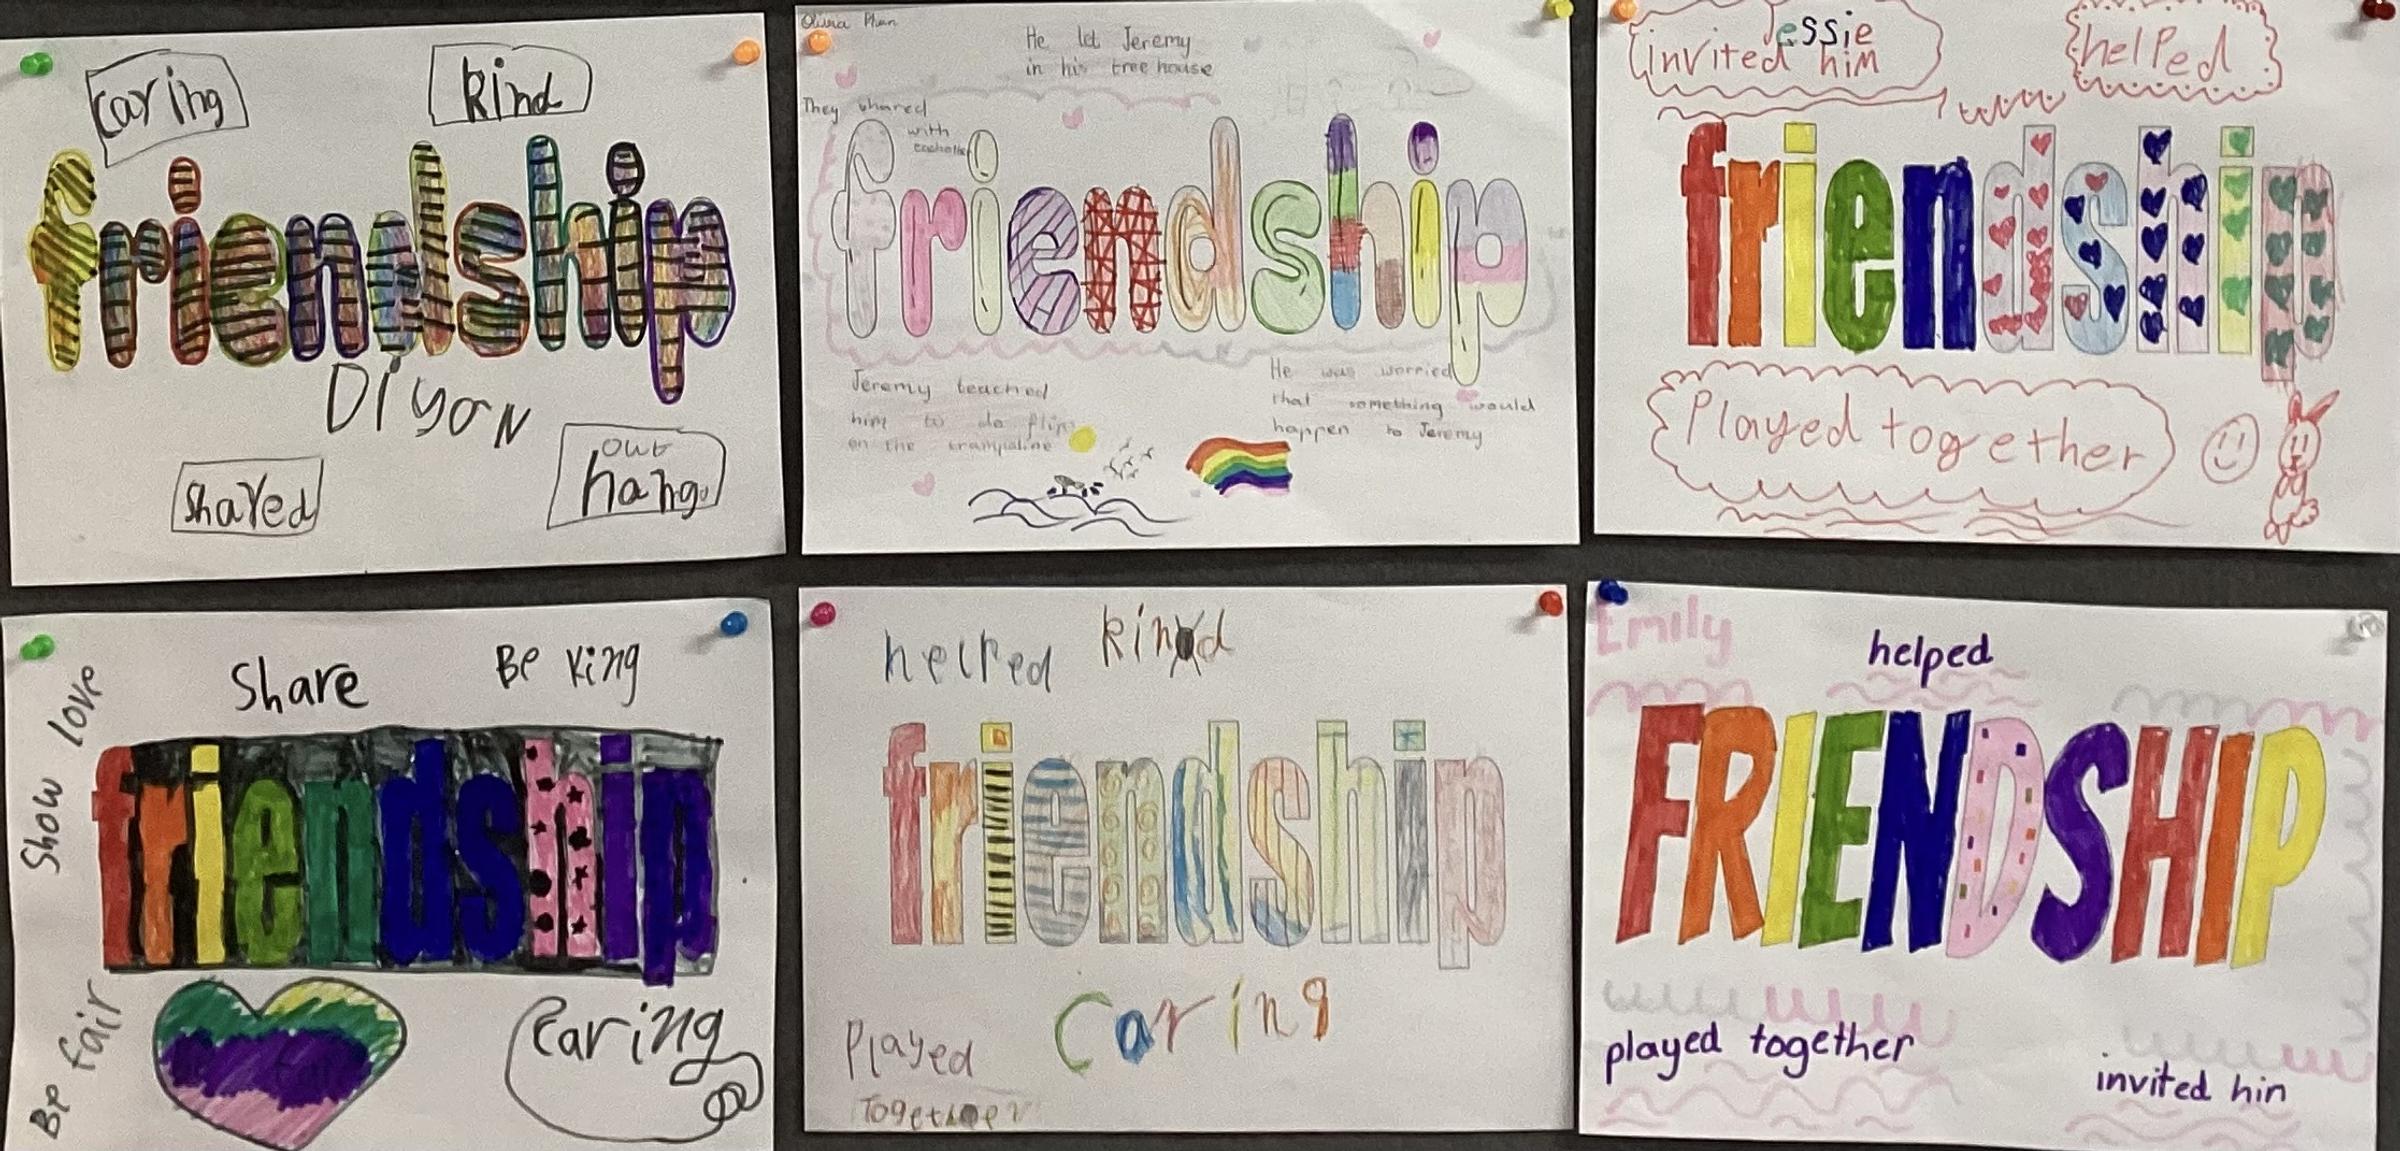 caring
kind
friendship
Diyon
shared
out
hang
Olivia Phan
He let Jeremy
in his tree house
They shared
with
friendship
Jeremy teached
him to do flips
on the trampoline
He was worried
that something would
happen to Jeremy
Jessie
invited him
helped
friendship
Played together
Show love
Share
Be King
friendship
Be fair
Caring
helped
kind
friendship
Caring
Played
Together
Emily
helped
FRIENDSHIP
played together
invited hin